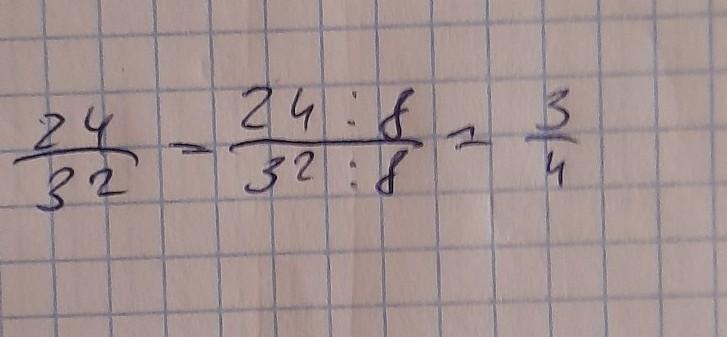 24/32 = 24 : 8/32 : 8 = 3/4